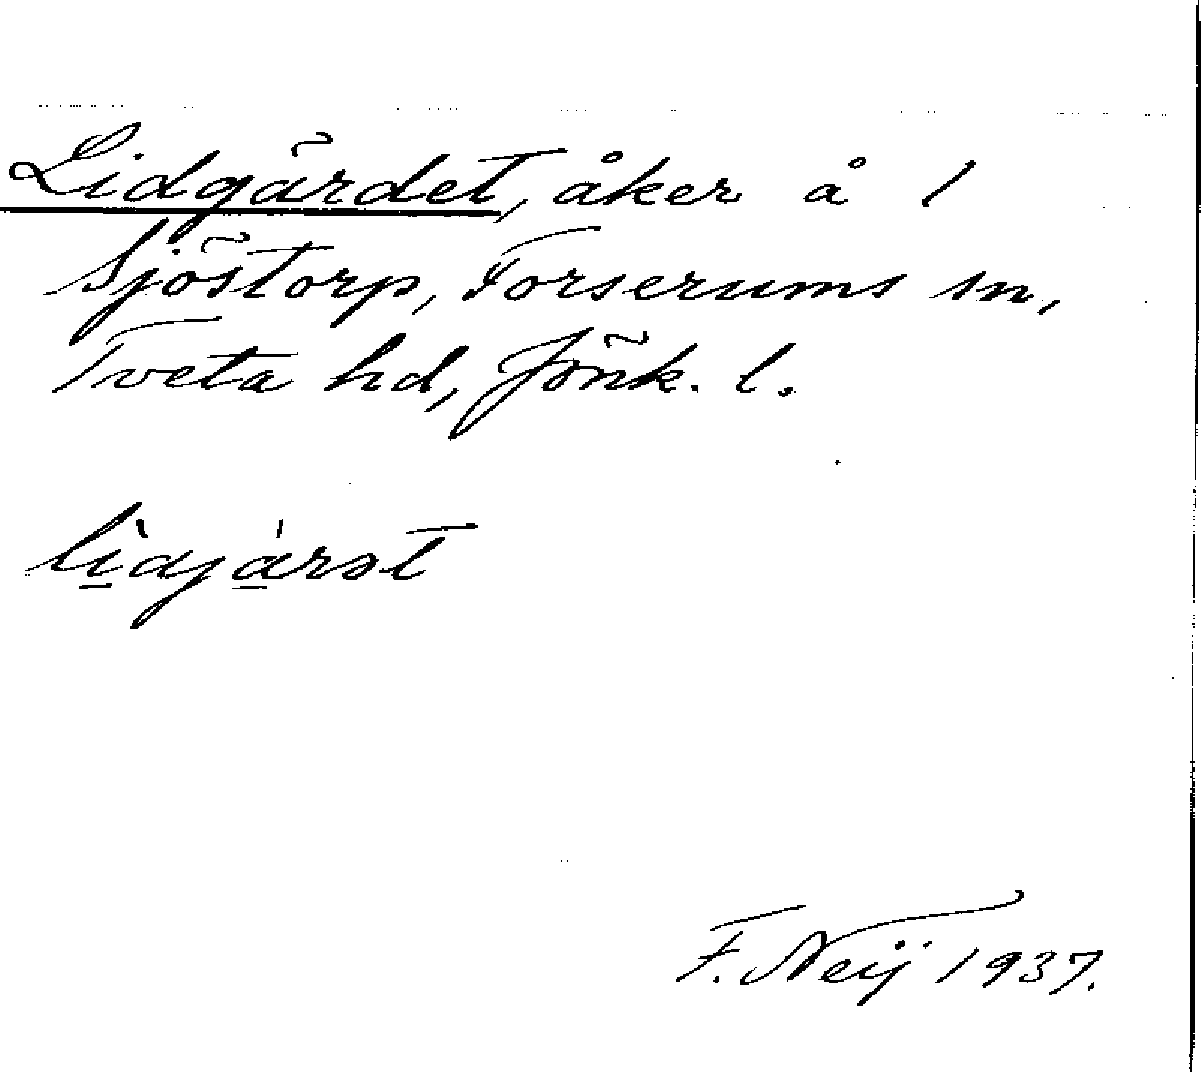 Lidgärdet, åker å 1
Sjöstorp, Forserums sn,
Tveta hd, Jönk. l.
lìdjárət
F. Neij 1937.